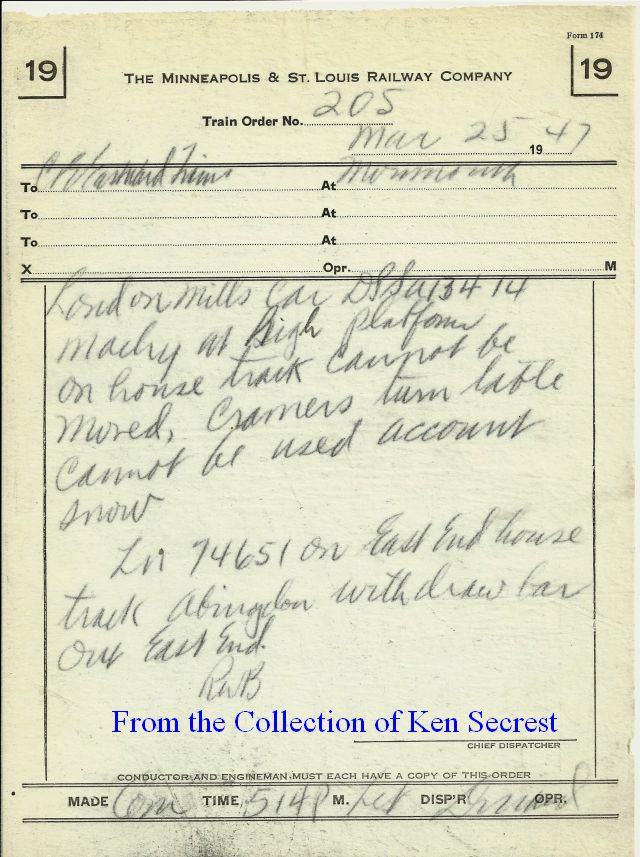 Form 174
19 19
THE MINNEAPOLIS & ST. LOUIS RAILWAY COMPANY
Train Order No. 205
Mar 25 1947
To C&E Eastward Trains At Monmouth
To At
To At
X Opr. M
London Mills Car 13414
Machy at high platform
on house track cannot be
moved, Cramers turn table
cannot be used account
snow
Ln 74651 on East End house
track Abingdon with draw bar
out East End.
RWB
From the Collection of Ken Secrest
CHIEF DISPATCHER
CONDUCTOR AND ENGINEMAN MUST EACH HAVE A COPY OF THIS ORDER
MADE Com TIME 514P M. DISP'R OPR.